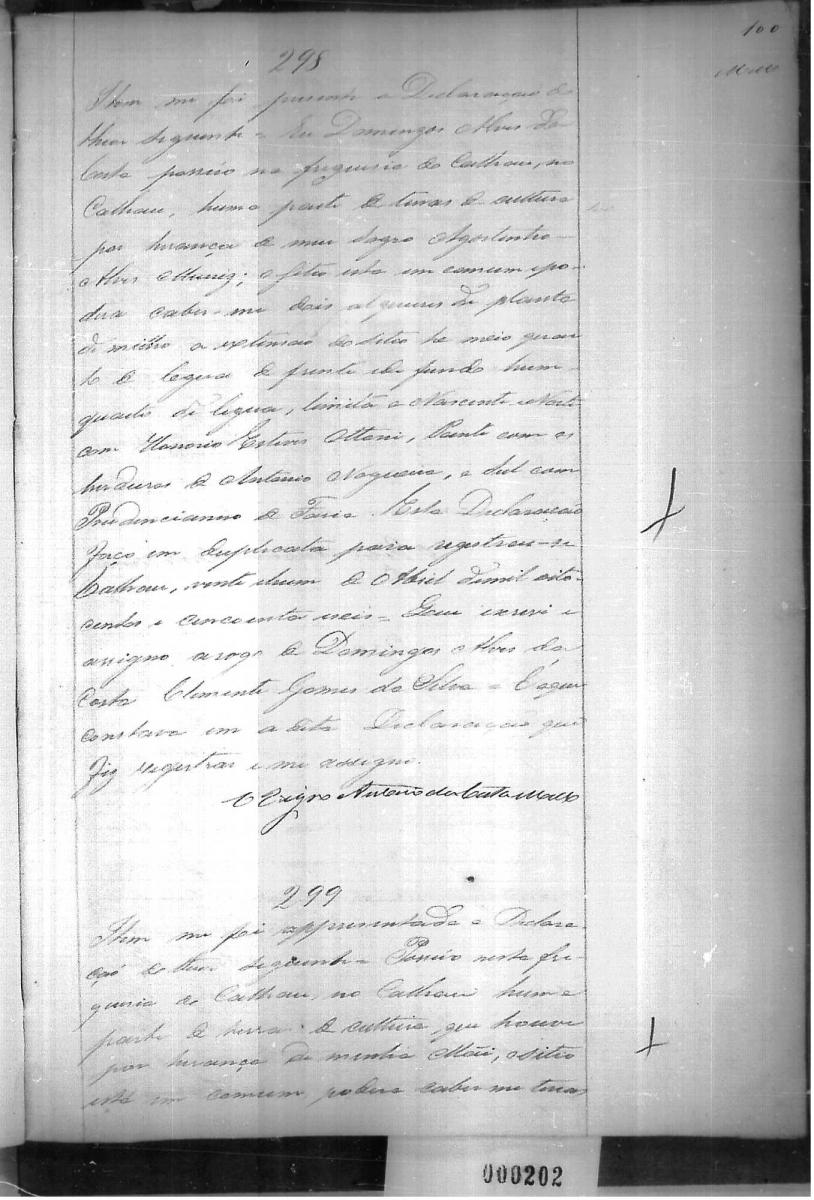 100
Mello
298
Item me foi presente a Declaração do
theor seguinte = Eu Domingos Alves da
Costa possuo na freguesia do Calhau, no
Calhau, huma parte de terras de cultura
por herança de meu sogro Agostinho
Alves; o sitio está em comum e po-
dera caber-me dois alqueires de planta
de milho a extensão do sitio he meio quar
to de legua de frente e de fundo hum
quarto de legua, limita a Nascente e Norte
com Honorio Esteves Ottoni, Poente com os
herdeiros de Antonio Nogueira, e Sul com
Prudencianno de Faria Esta Declaração
faço em duplicata para registrar-se
Calhau, vinte e hum de Abril de mil oito-
centos e cincoenta e seis = Que escrevi e
assigno a rogo de Domingos Alves da
Costa Clemente Gomes da Silva = E o que
constava em a dita Declaração que
fiz registrar e me assigno.
O Vigro Antonio da Costa Mello
299
Item me foi appresentada a Declara
ção do theor seguinte = Possuo nesta fre-
guesia do Calhau, no Calhau huma
parte de terra de cultura, que houve
por herança de minha Mãi, o sitio
está em comum, podera caber me terras
000202